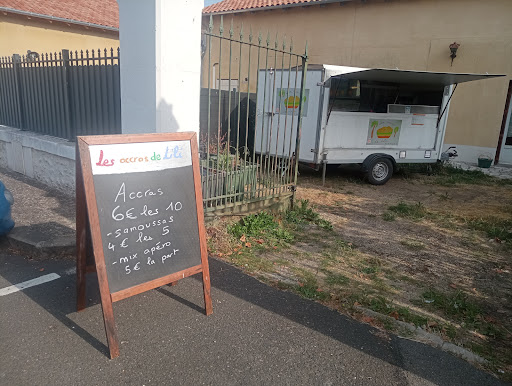 Les accras de Lili
Accras
6€ les 10
- samoussas
4€ les 5
- mix apéro
5€ la part